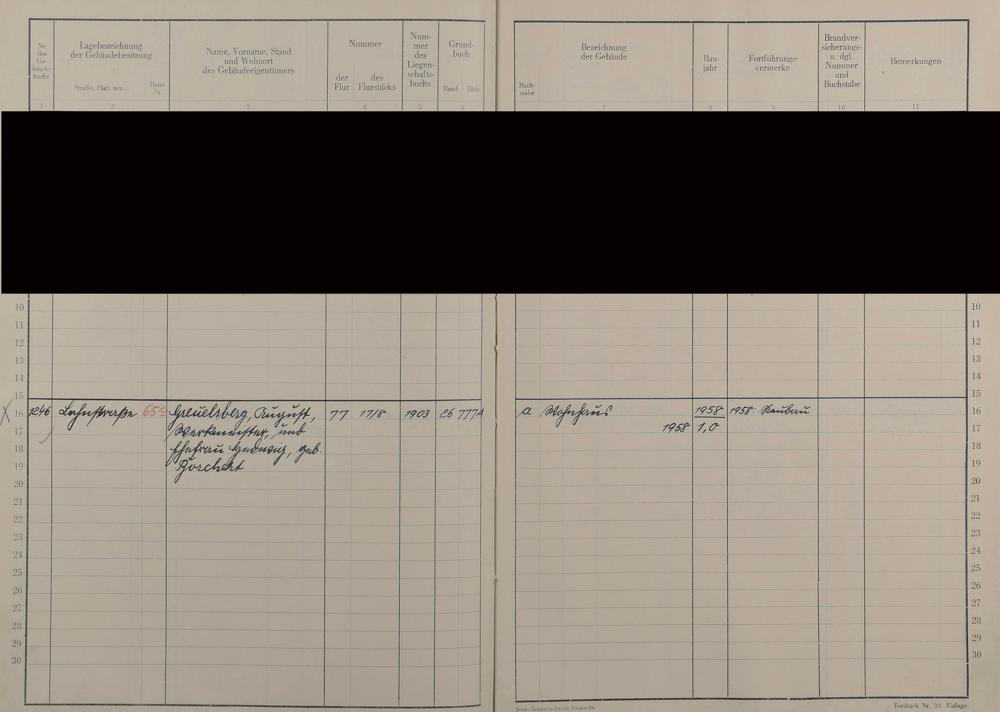 Nr. des Ge- bäude- buchs
Lagebezeichnung der Gebäudebesitzung
Straße, Platz usw.
Haus Nr.
Name, Vorname, Stand und Wohnort des Gebäudeeigentümers
Nummer
der Flur
des Flurstücks
Num- mer des Liegen- schafts- buchs
Grund- buch
Band
Blatt
Buch- stabe
Bezeichnung der Gebäude
Bau- jahr
Fortführungs- vermerke
Brandver- sicherungs- u. dgl. Nummer und Buchstabe
Bemerkungen
1 2 3 4 5 6 7 8 9 10 11
10 10
11 11
12 12
13 13
14 14
15 15
16 1246 Lahnstraße Greuelsberg, August, 77 17/8 1903 26 777A a Wohnhaus 1958 1958 Neubau 16
17 Werkmeister, und 1958 1,0 17
18 Ehefrau Hedwig, geb. 18
19 Borchert 19
20 20
21 21
22 22
23 23
24 24
25 25
26 26
27 27
28 28
29 29
30 30
Vordruck Nr. 39. Einlage